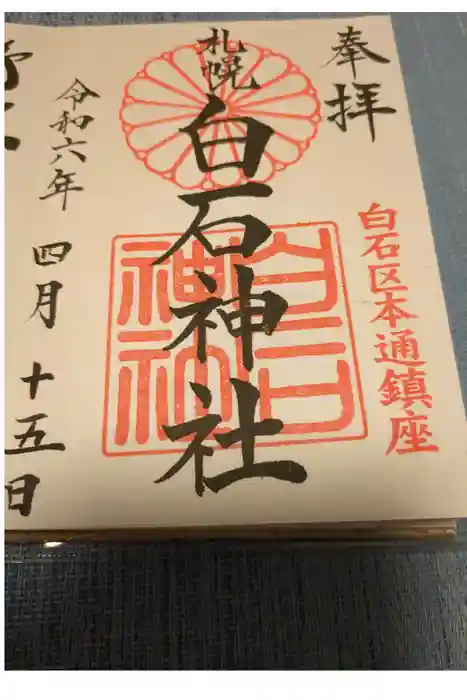 奉拝
白石区本通鎮座
札幌
白石神社
白石神社
令和六年
四月
十五日